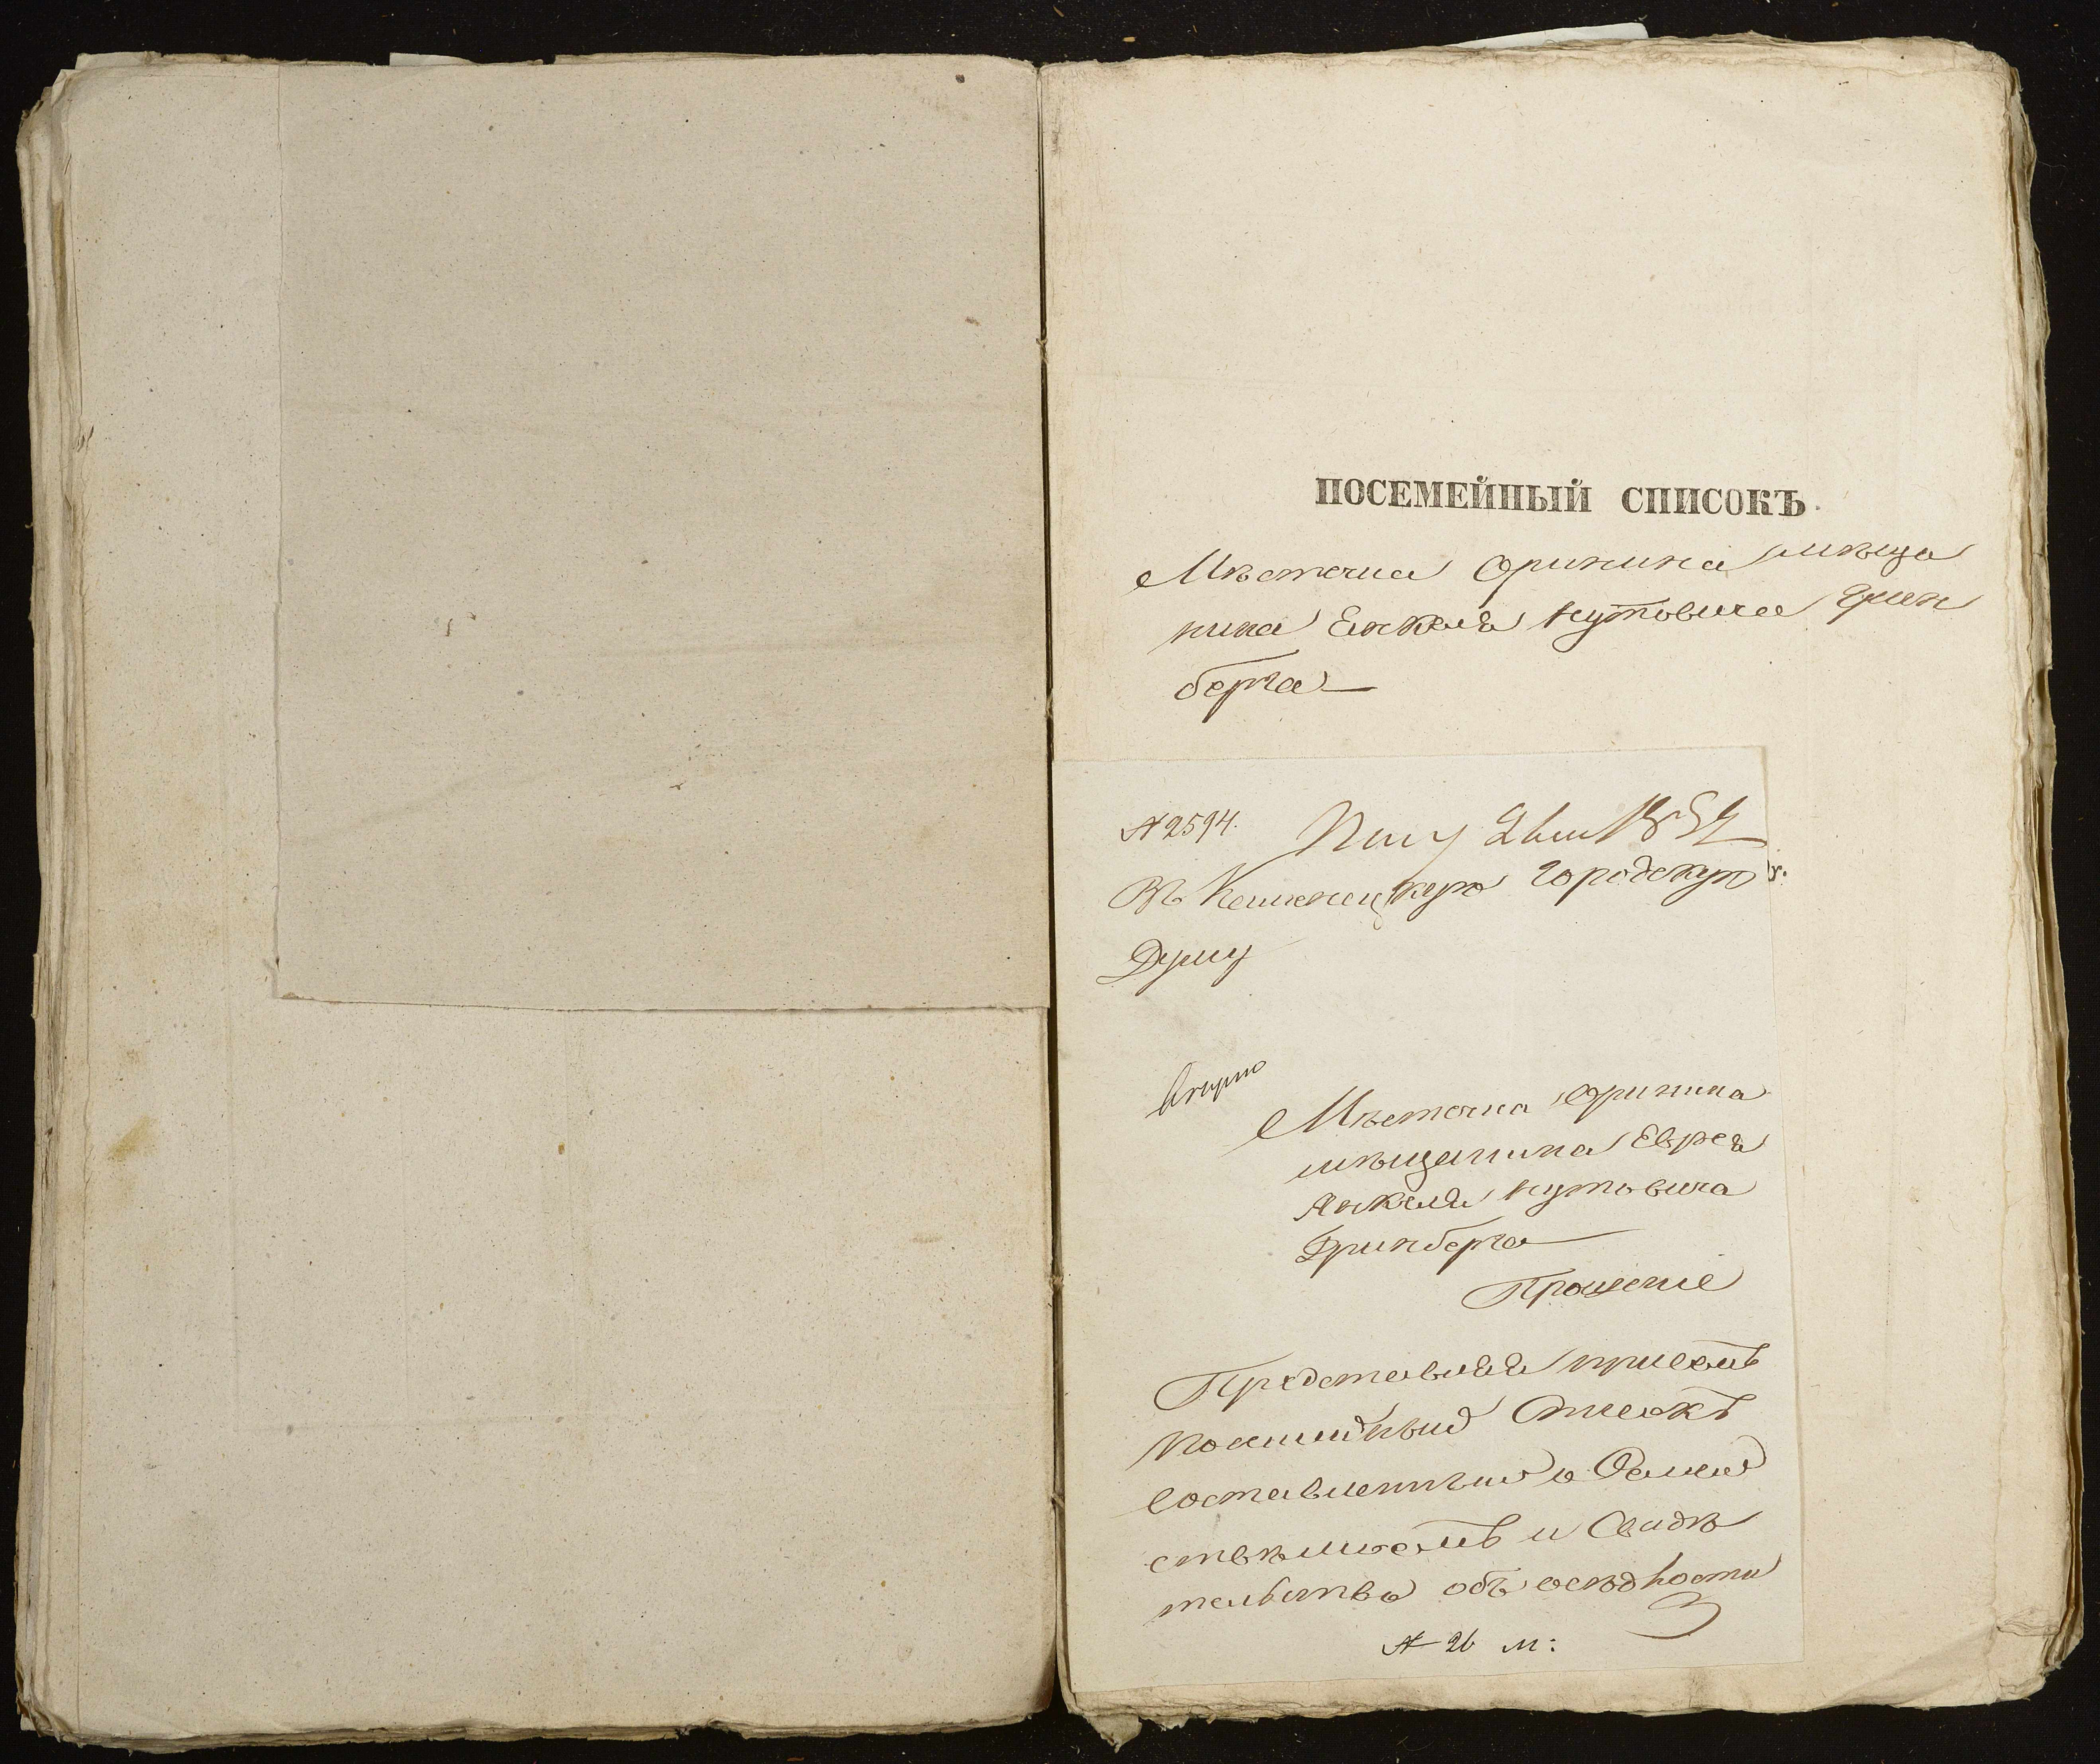 ПОСЕМЕЙНЫЙ СПИСОКЪ.
Мѣстечка Оринина мѣща
нина Янкеля Нутовича Грин
берга
№ 2594.
Въ Каменецкую Городскую
Думу
Мѣстечка Оринина
мѣщанина Еврея
Янкеля Нутовича
Гринберга
Прошеніе
Представляя присемъ
посемейный Списокъ
составленный о Семей
ствѣ моемъ и Свидѣ
тельство объ осѣдлости
№ 26 м: